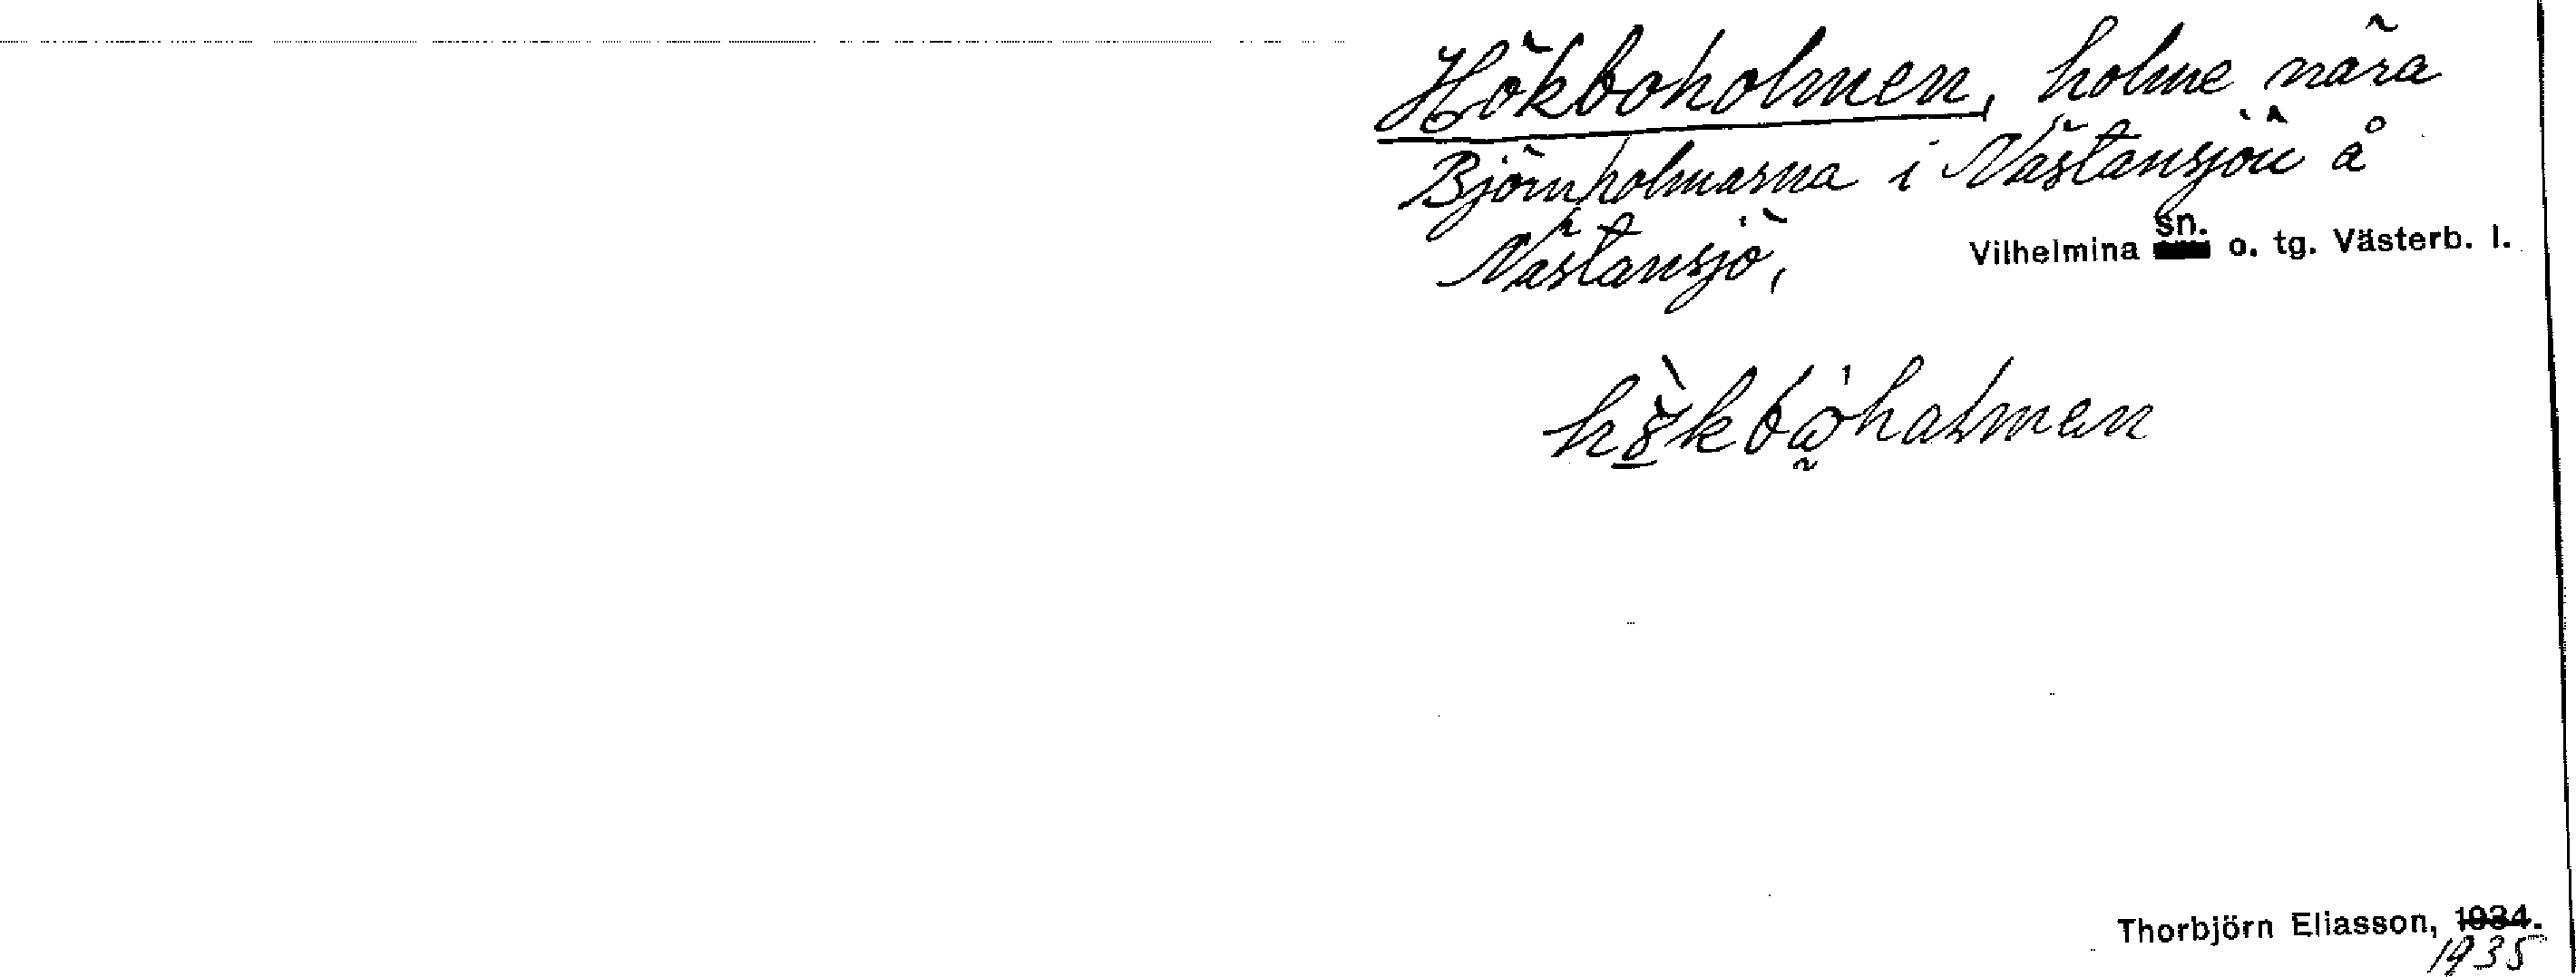 Hökboholmen, holme nära
Björnholmarna i Nästansjön å
Nästansjö, Vilhelmina sn. o. tg. Västerb. l.
Thorbjörn Eliasson, 1934.
1935